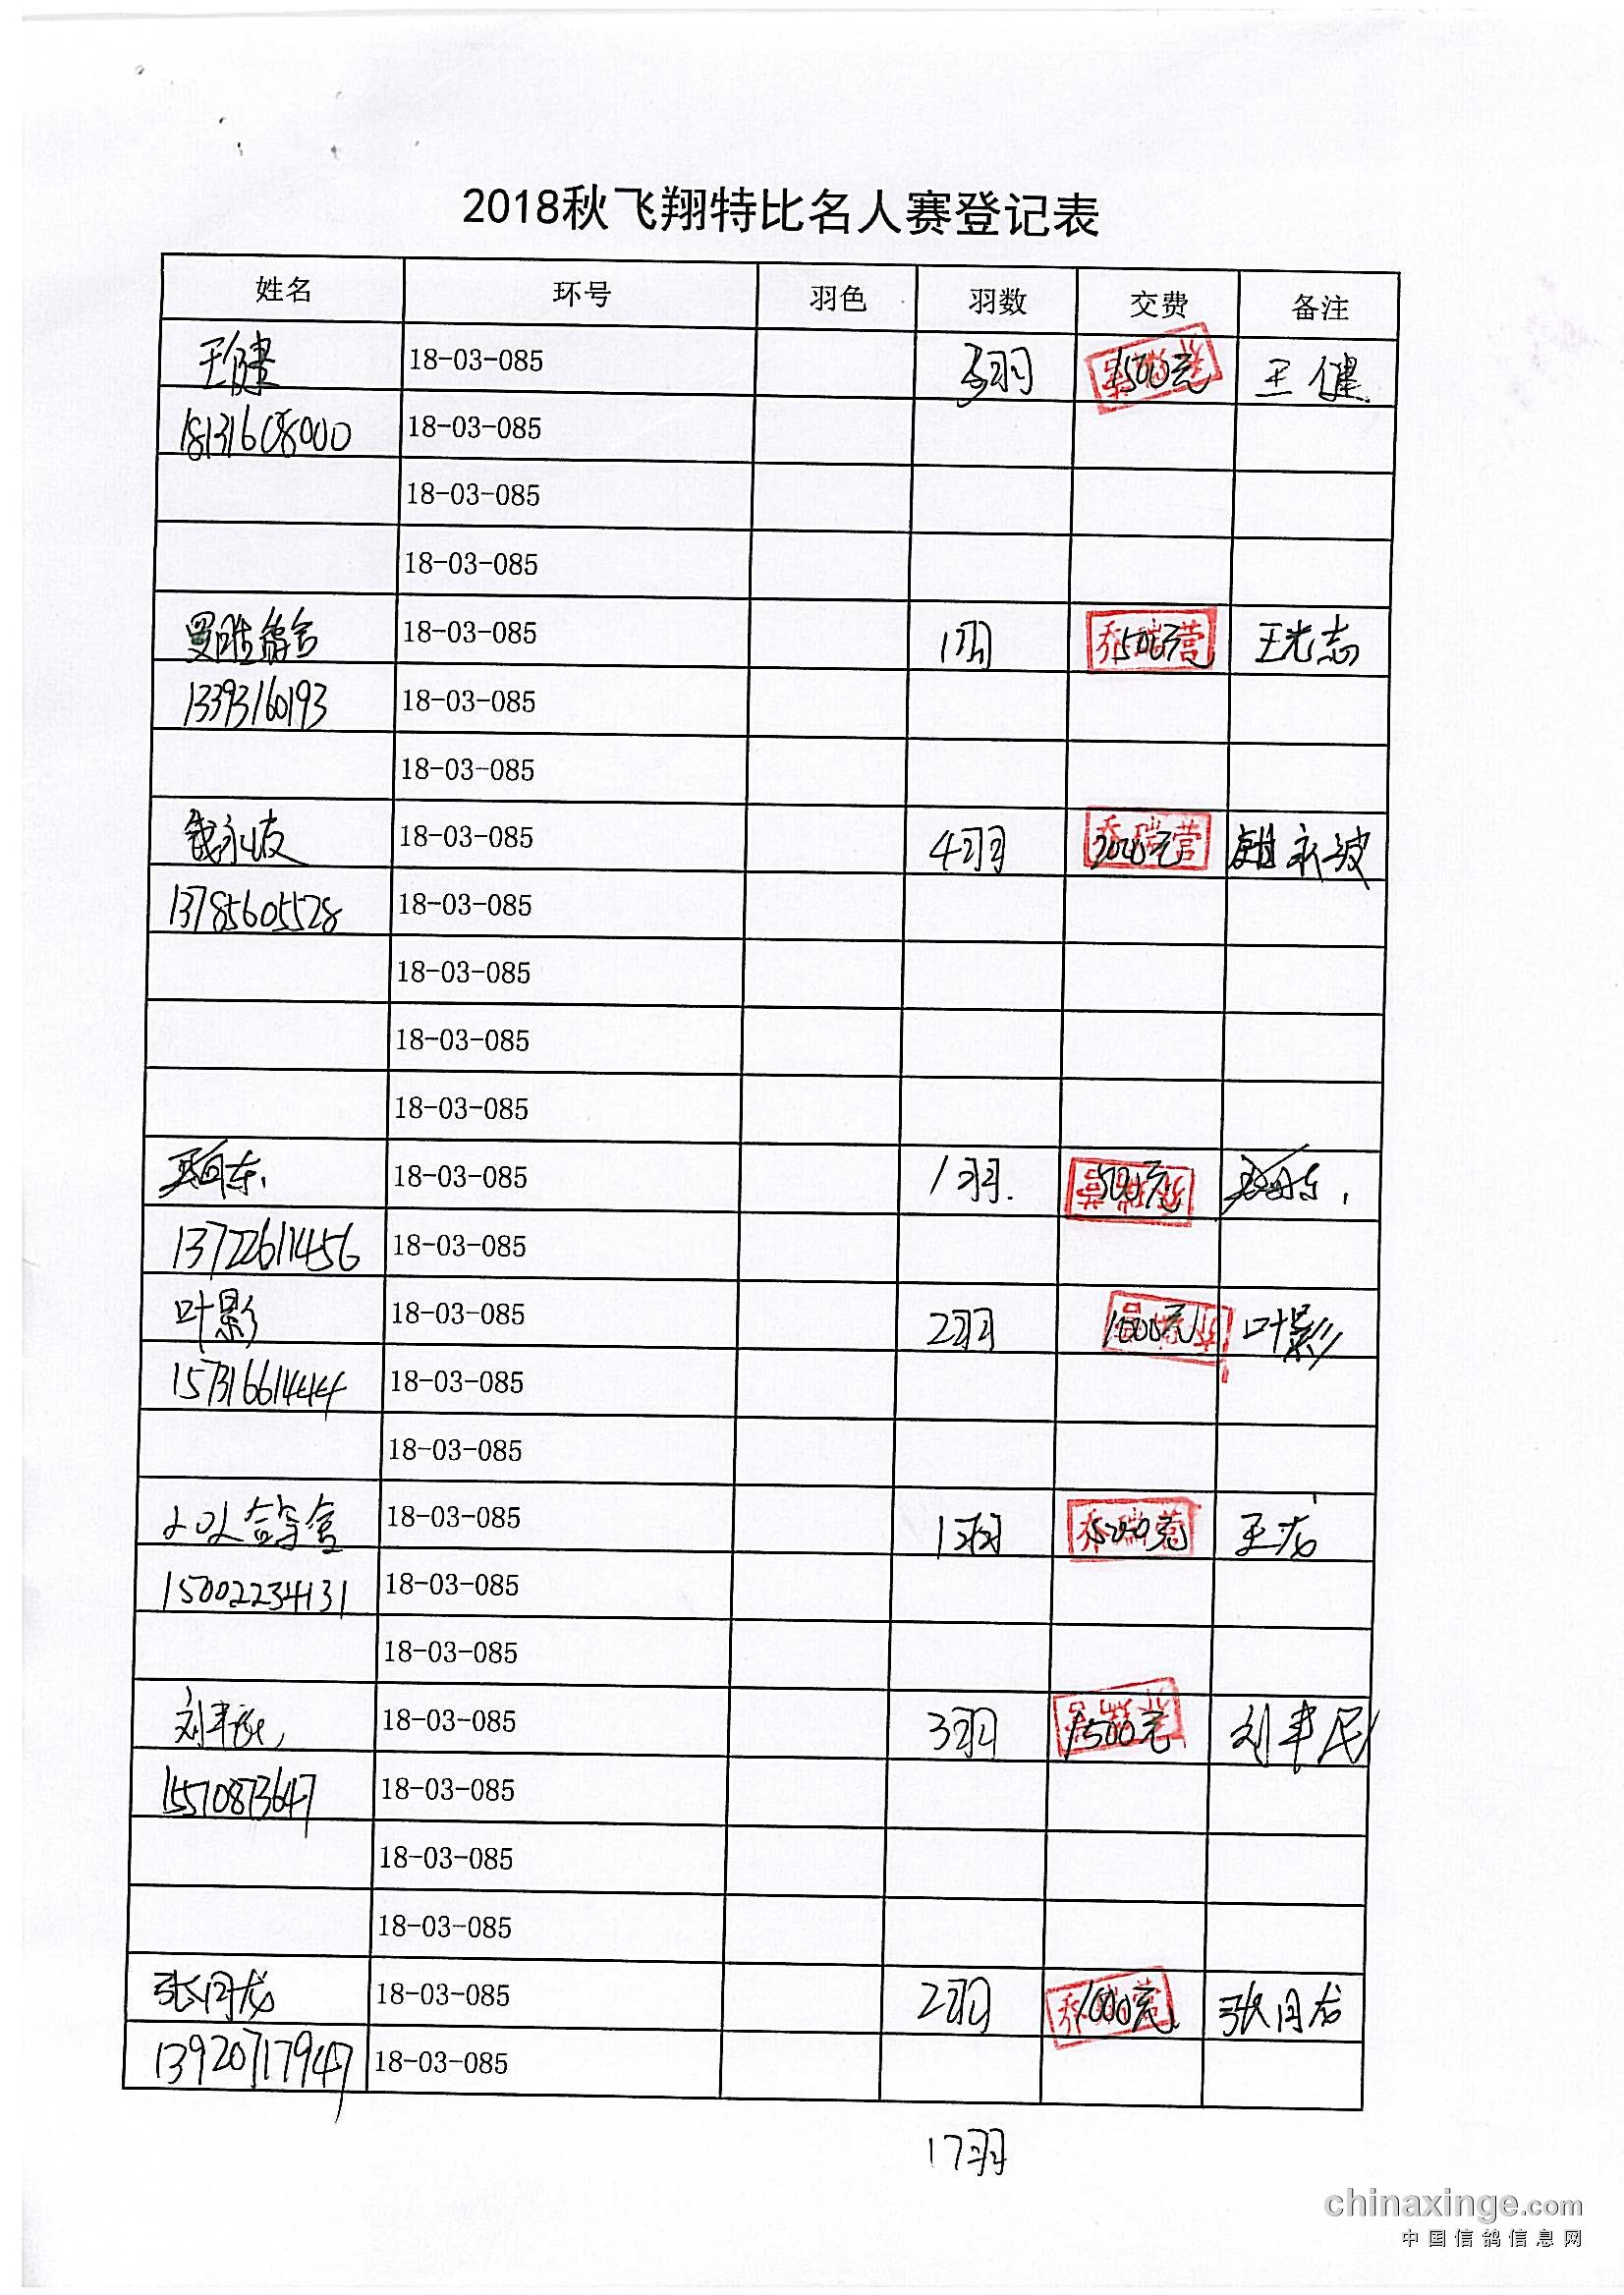 2018秋飞翔特比名人赛登记表
姓名 环号 羽色 羽数 交费 备注
王健 18-03-085 3羽 1500元 王健
18131608000 18-03-085
18-03-085
18-03-085
鸽舍 18-03-085 1羽 500元 王光志
13393160193 18-03-085
18-03-085
永波 18-03-085 4羽 2000元 永波
13785605528 18-03-085
18-03-085
18-03-085
18-03-085
东 18-03-085 1羽 500元 东
13722611456 18-03-085
叶影 18-03-085 2羽 1000元 叶影
15731661444 18-03-085
18-03-085
鸽舍 18-03-085 1羽 500元 王龙
15002234131 18-03-085
18-03-085
刘丰民 18-03-085 3羽 1500元 刘丰民
15510873647 18-03-085
18-03-085
18-03-085
张同龙 18-03-085 2羽 1000元 张同龙
13920717947 18-03-085
17羽
chinaxinge.com
中国信鸽信息网